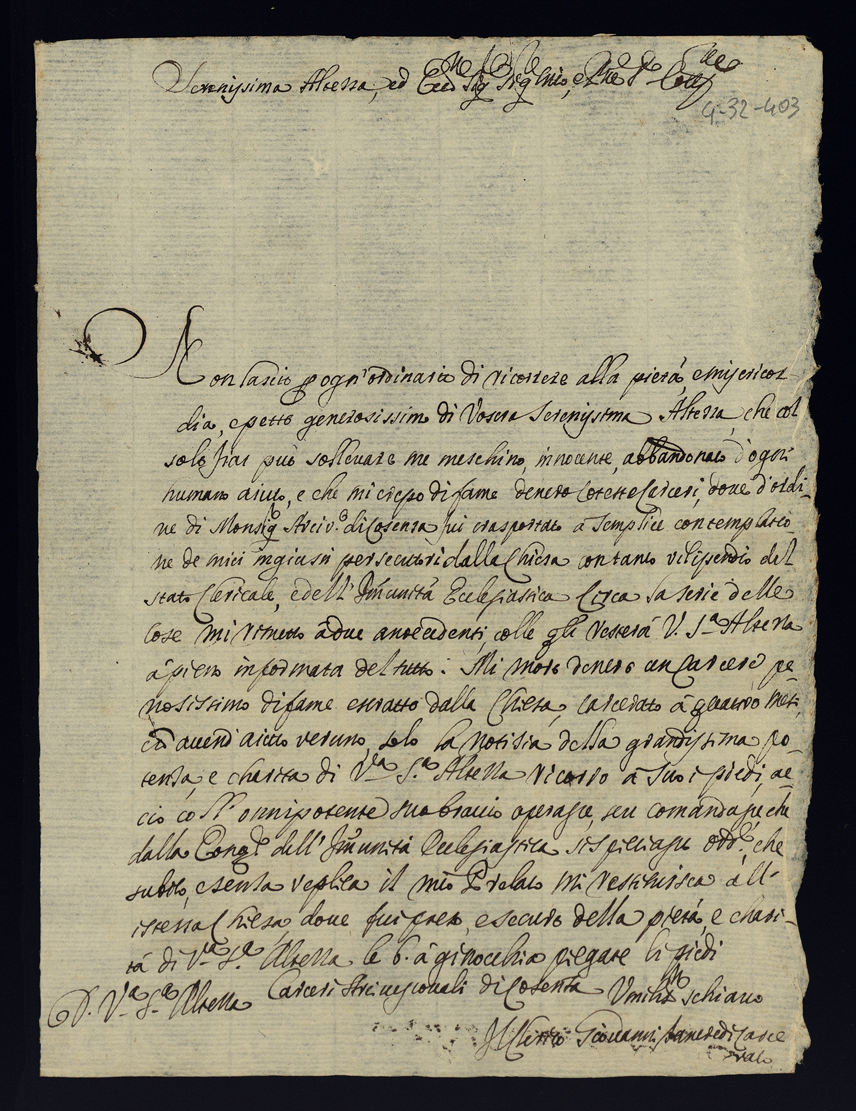 Serenissima Altezza, ed Ecc.ma Sig.r Sig.r mio, e
4-32-403
Non lascio p ogn'ordinario di ricorrere alla pietà, e misericor-
dia, e petto generosissimo di Vostra Serenissima Altezza, che col
solo fiat può sollevare me meschino, innocente, abbandonato d'ogni
humano aiuto, e che mi crepo di fame dentro coteste Carceri, dove d'ordi-
ne di Monsig.r Arciv.o di Cosenza fui trasportato a semplice contemplatio-
ne de miei ingiusti persecutori dalla Chiesa con tanto vilipendio del
stato Clericale, e dell'Im̃unità Ecclesiastica Circa la serie delle
cose mi rimetto à due antecedenti, colle q̃li resterà V. S.ma Altezza
à pieno informata del tutto: Mi moro dentro un Carcere pe-
nosissimo di fame estratto dalla Chiesa, carcerato à quattro mesi,
aiuto veruno, solo la notizia della grandissima po-
tenza, e charità di V.ra S.ma Altezza ricorro à suoi piedi, ac-
ciò coll'onnipotente suo braccio operasse, seu comandasse che
dalla Cong.ne dell'Im̃unità Ecclesiastica si spedisse ord.e, che
subito, e senza replica il mio Prelato mi restituisca all'
istessa Chiesa, dove fui preso, e securo della pietà, e chari-
tà di V.ra S.ma Altezza le b. à ginocchia piegate li piedi
D. V.ra S.ma Altezza Carceri Arcivescovali di Cosenza Umiliss.mo schiavo
Il Clerico Giovanni